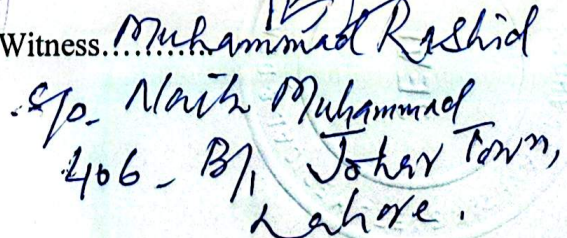 Witness.......Muhammad Rashid
S/o. Naik Muhammad
406 - B/1 Johar Town,
Lahore.